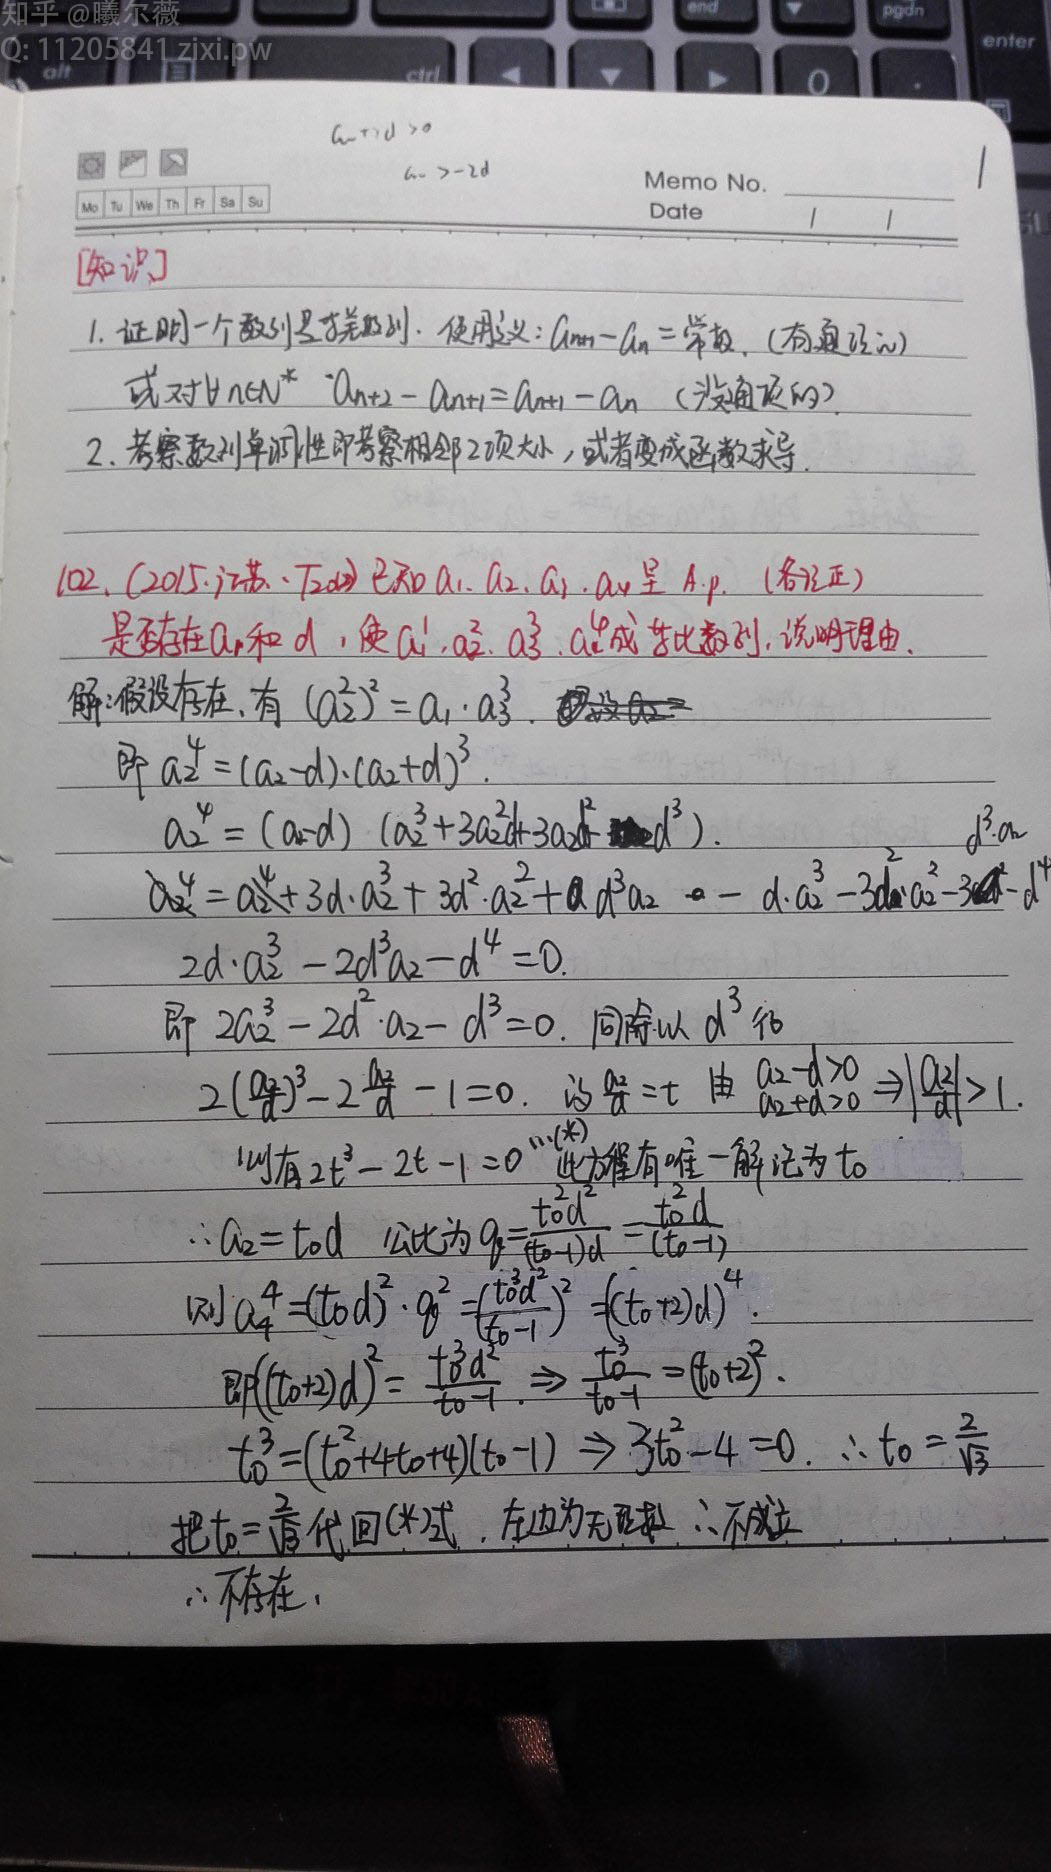 知乎 @曦尔薇
Q: 11205841.zixi.pw
end
pgdn
enter
alt
ctrl
0
aₙ+2d>0
aₙ>-2d
1
Memo No.
Date / /
Mo Tu We Th Fr Sa Su
[知识]
1. 证明一个数列是等差数列. 使用定义: aₙ₊₁-aₙ=常数. (有通项的)
或对∀n∈N* aₙ₊₂-aₙ₊₁=aₙ₊₁-aₙ (没通项的).
2. 考察数列单调性即考察相邻2项大小, 或者变成函数求导.
102. (2015.江苏.T20(2)) 已知 a₁. a₂. a₃. a₄ 呈 A.p. (各项正)
是否存在 a₁ 和 d, 使 a₁¹. a₂². a₃³. a₄⁴ 成等比数列, 说明理由.
解: 假设存在, 有 (a₂²)²=a₁·a₃³.
即 a₂⁴=(a₂-d)·(a₂+d)³.
a₂⁴=(a₂-d)(a₂³+3a₂²d+3a₂d²+d³).
d³·a₂
a₂⁴=a₂⁴+3d·a₂³+3d²·a₂²+d³a₂ - d·a₂³-3d²·a₂²-3 -d⁴
2d·a₂³-2d³a₂-d⁴=0.
即 2a₂³-2d²·a₂-d³=0. 同除以 d³ 得
2(a₂/d)³-2a₂/d-1=0. 设 a₂/d=t 由 a₂-d>0 a₂+d>0 ⇒|a₂/d|>1.
则有 2t³-2t-1=0 …(*) 此方程有唯一解记为 t₀
∴a₂=t₀d 公比为 q=t₀²d²/(t₀-1)d=t₀²d/(t₀-1)
则 a₄⁴=(t₀d)²·q²=(t₀³d²/t₀-1)²=((t₀+2)d)⁴.
即((t₀+2)d)²=t₀³d²/t₀-1. ⇒ t₀³/t₀-1=(t₀+2)².
t₀³=(t₀²+4t₀+4)(t₀-1) ⇒ 3t₀²-4=0. ∴t₀=2/√3
把 t₀=2/√3 代回(*)式, 左边为无理数 ∴不成立
∴不存在.